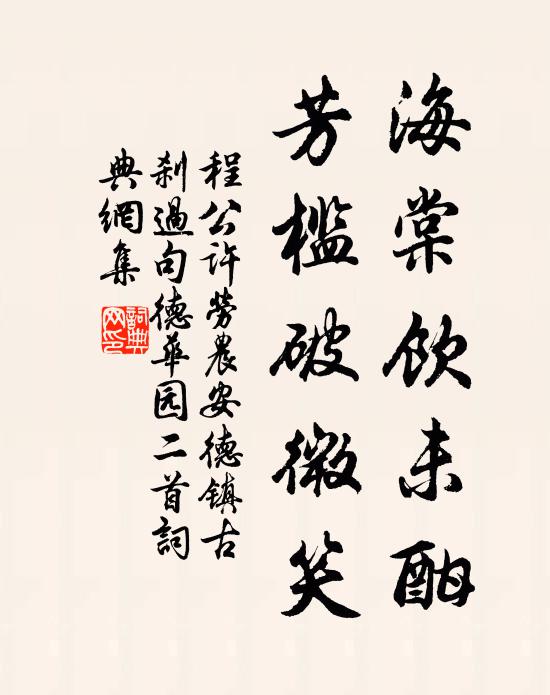 海棠飲未酣
芳檻破微笑
程公許勞農安德鎮古
剎過句德華园二首詞
典網集
詞典
网印